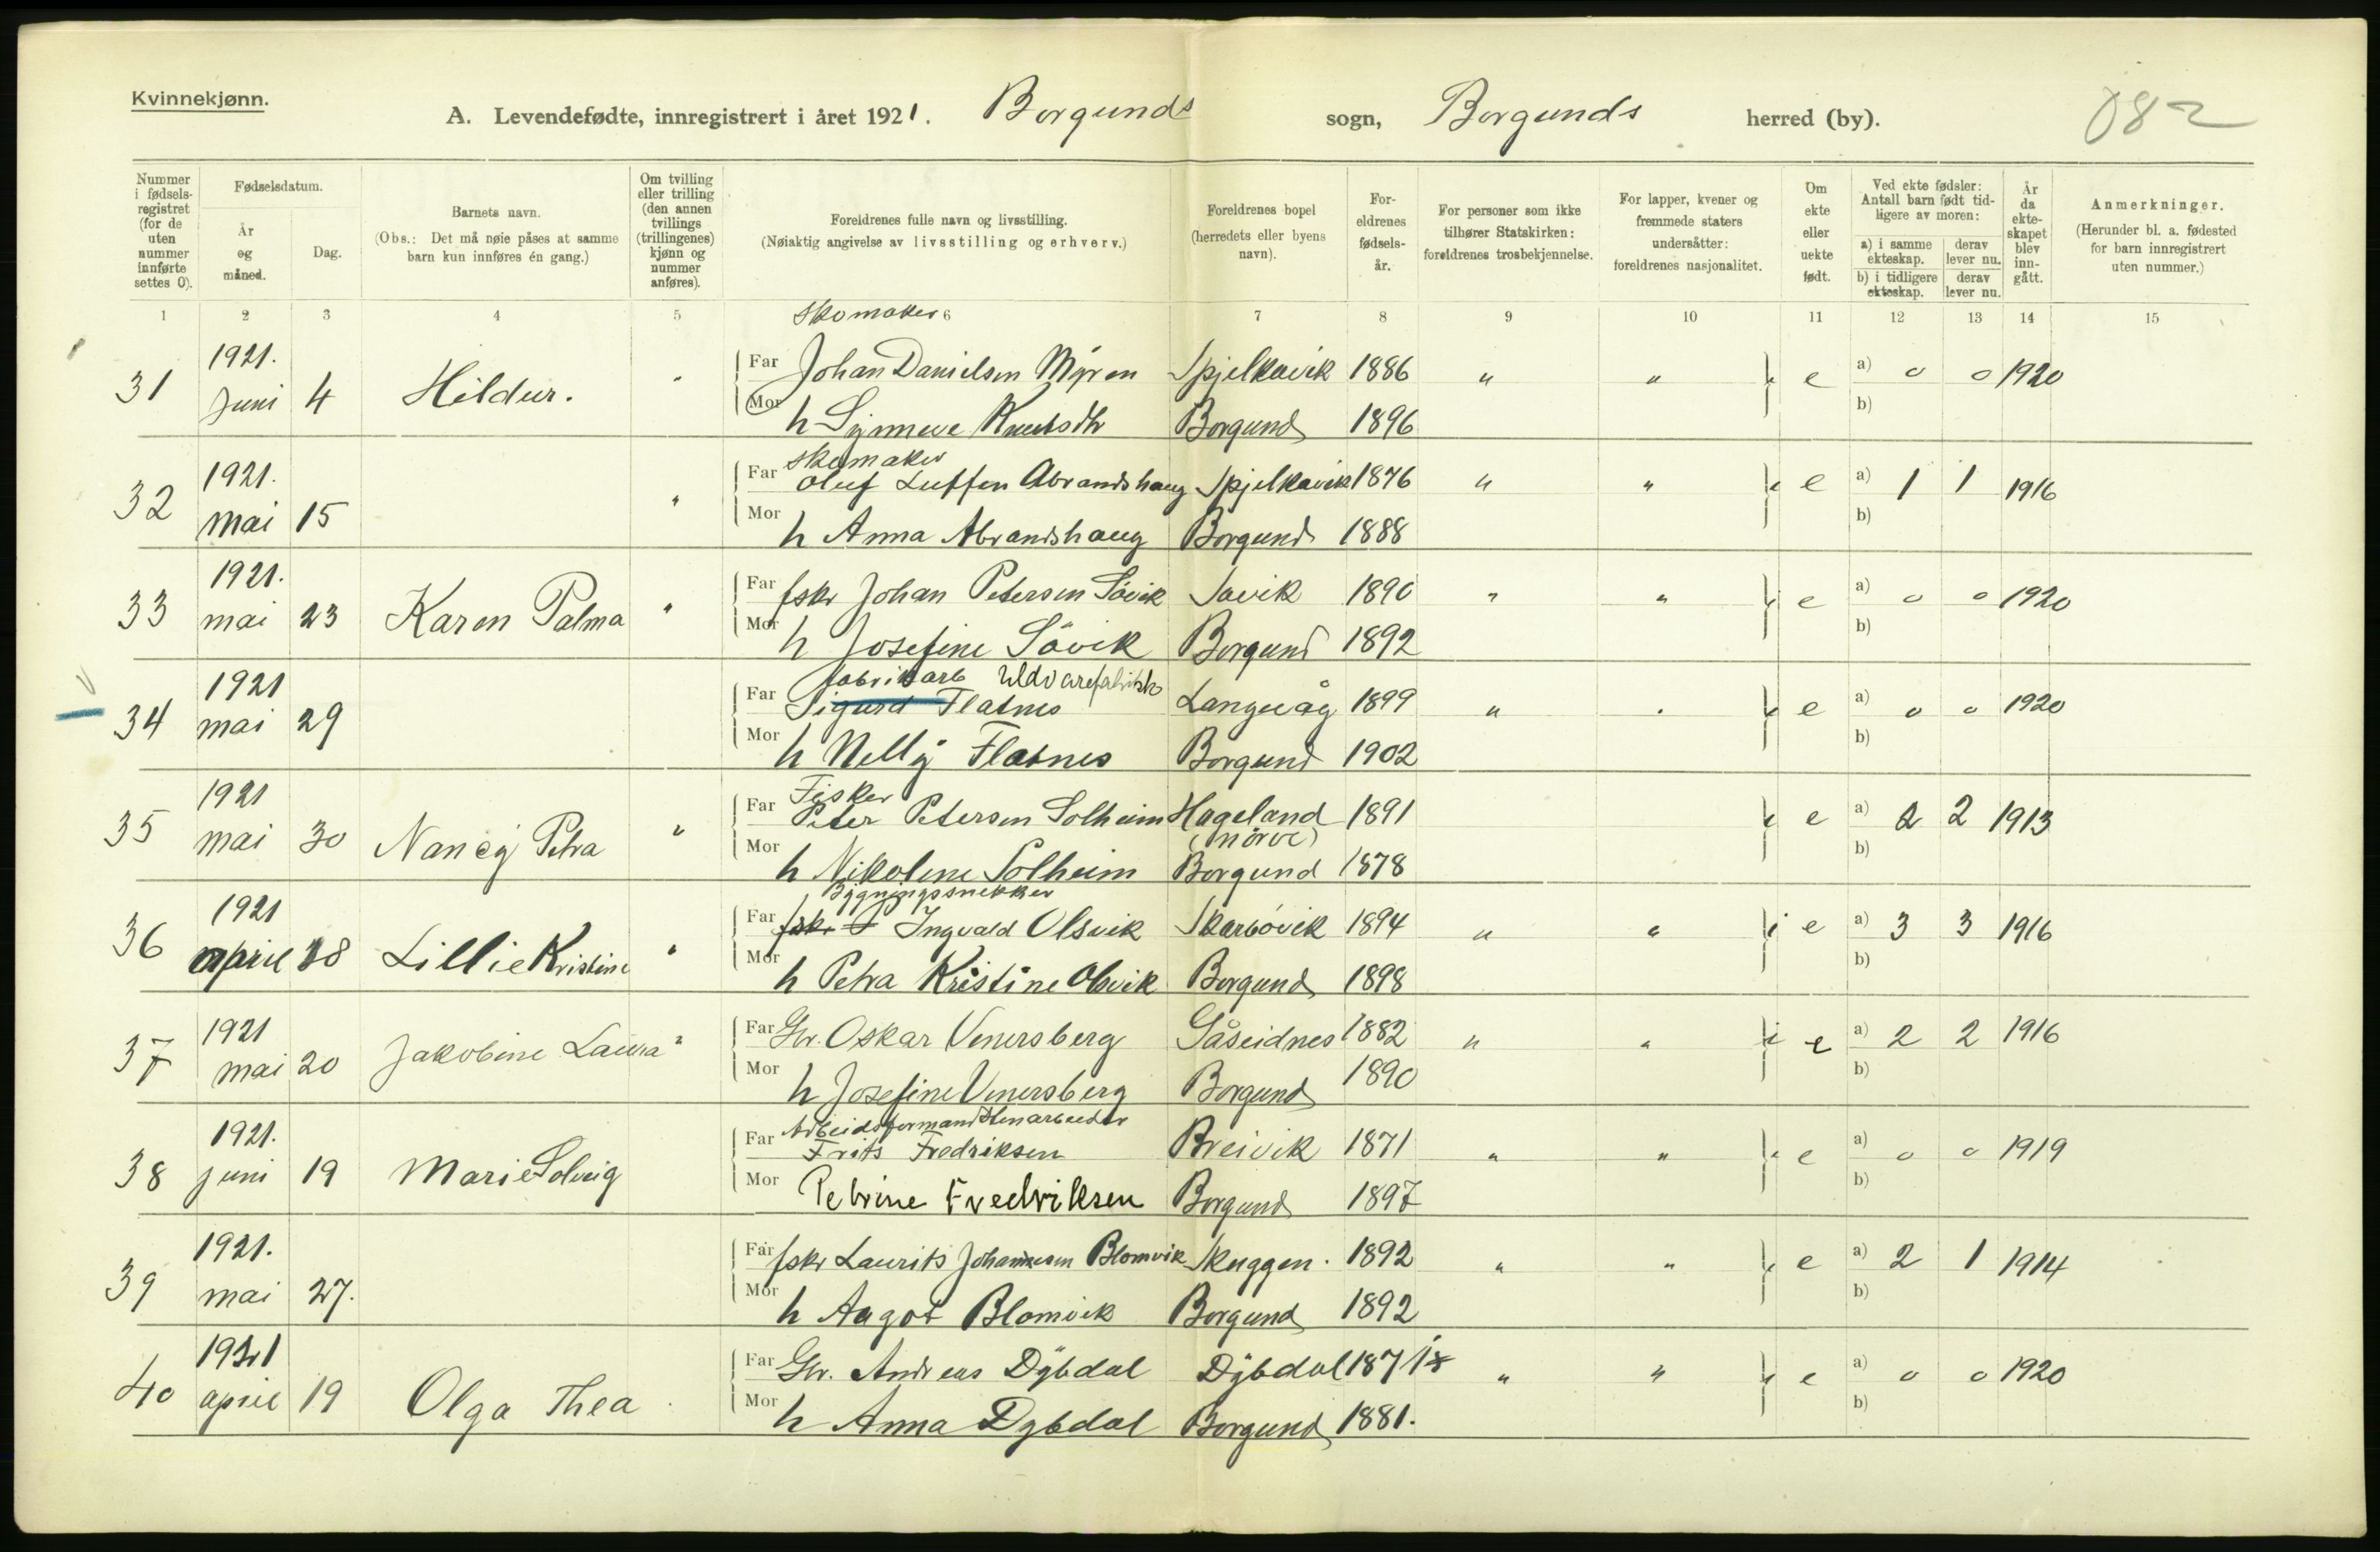 Kvinnekjønn.
A. Levendefødte, innregistrert i året 1921. Borgunds sogn, Borgunds herred (by).
082
Nummer i fødsels-registret (for de uten nummer innførte settes 0).
Fødselsdatum.
År og måned.
Dag.
Barnets navn.
(Obs.: Det må nøie påses at samme barn kun innføres én gang.)
Om tvilling eller trilling (den annen tvillings (trillingenes) kjønn og nummer anføres).
Foreldrenes fulle navn og livsstilling.
(Nøiaktig angivelse av livsstilling og erhverv.)
Foreldrenes bopel (herredets eller byens navn).
For-eldrenes fødsels-år.
For personer som ikke tilhører Statskirken: foreldrenes trosbekjennelse.
For lapper, kvener og fremmede staters undersåtter: foreldrenes nasjonalitet.
Om ekte eller uekte født.
Ved ekte fødsler: Antall barn født tid-ligere av moren:
a) i samme ekteskap. derav lever nu.
b) i tidligere ekteskap. derav lever nu.
År da ekte-skapet blev inn-gått.
Anmerkninger.
(Herunder bl. a. fødested for barn innregistrert uten nummer.)
1 2 3 4 5 6 7 8 9 10 11 12 13 14 15
Skomaker
31 1921. Juni 4 Hildur. " Far Johan Danielsen Myren Spjelkavik 1886 " " e a) 0 0 1920
Mor h Synneve Knutsdtr Borgund 1896 b)
Skomaker
32 1921. mai 15 " Far Oluf Luffen Abrandshaug Spjelkavik 1876 " " e a) 1 1 1916
Mor h Anna Abrandshaug Borgund 1888 b)
33 1921. mai 23 Karen Palma " Far fskr Johan Petersen Sövik Savik 1890 " " e a) 0 0 1920
Mor h Josefine Sövik Borgund 1892 b)
fabrikarb Uldvarefabrikk
34 1921 mai 29 Far Sigurd Flatnes Langevåg 1899 " " e a) 0 0 1920
Mor h Nelly Flatnes Borgund 1902 b)
Fisker
35 1921 mai 30 Nancy Petra " Far Peter Petersen Solheim Hageland (Nörve) 1891 e a) 2 2 1913
Mor h Nikoline Solheim Borgund 1878 b)
Bygningssnekker
36 1921 april 28 Lillie Kristine " Far fskr P Ingvald Olsvik Skarbövik 1894 " " e a) 3 3 1916
Mor h Petra Kristine Olsvik Borgund 1898 b)
37 1921 mai 20 Jakobine Laura " Far Gbr. Oskar Venersberg Gåseidnes 1882 " " e a) 2 2 1916
Mor h Josefine Venersberg Borgund 1890 b)
Arbeidsformand Stenarbeider
38 1921. juni 19 Marie Solveig Far Frits Fredriksen Breivik 1871 " " e a) 0 0 1919
Mor Petrine Fredriksen Borgund 1897 b)
39 1921. mai 27. Far fskr Laurits Johannesen Blomvik Skuggen. 1892 " " e a) 2 1 1914
Mor h Aagot Blomvik Borgund 1892 b)
40 1921 april 19 Olga Thea Far Gbr. Andreas Dybdal Dybdal 1871 " " e a) 0 0 1920
Mor h Anna Dybdal Borgund 1881. b)